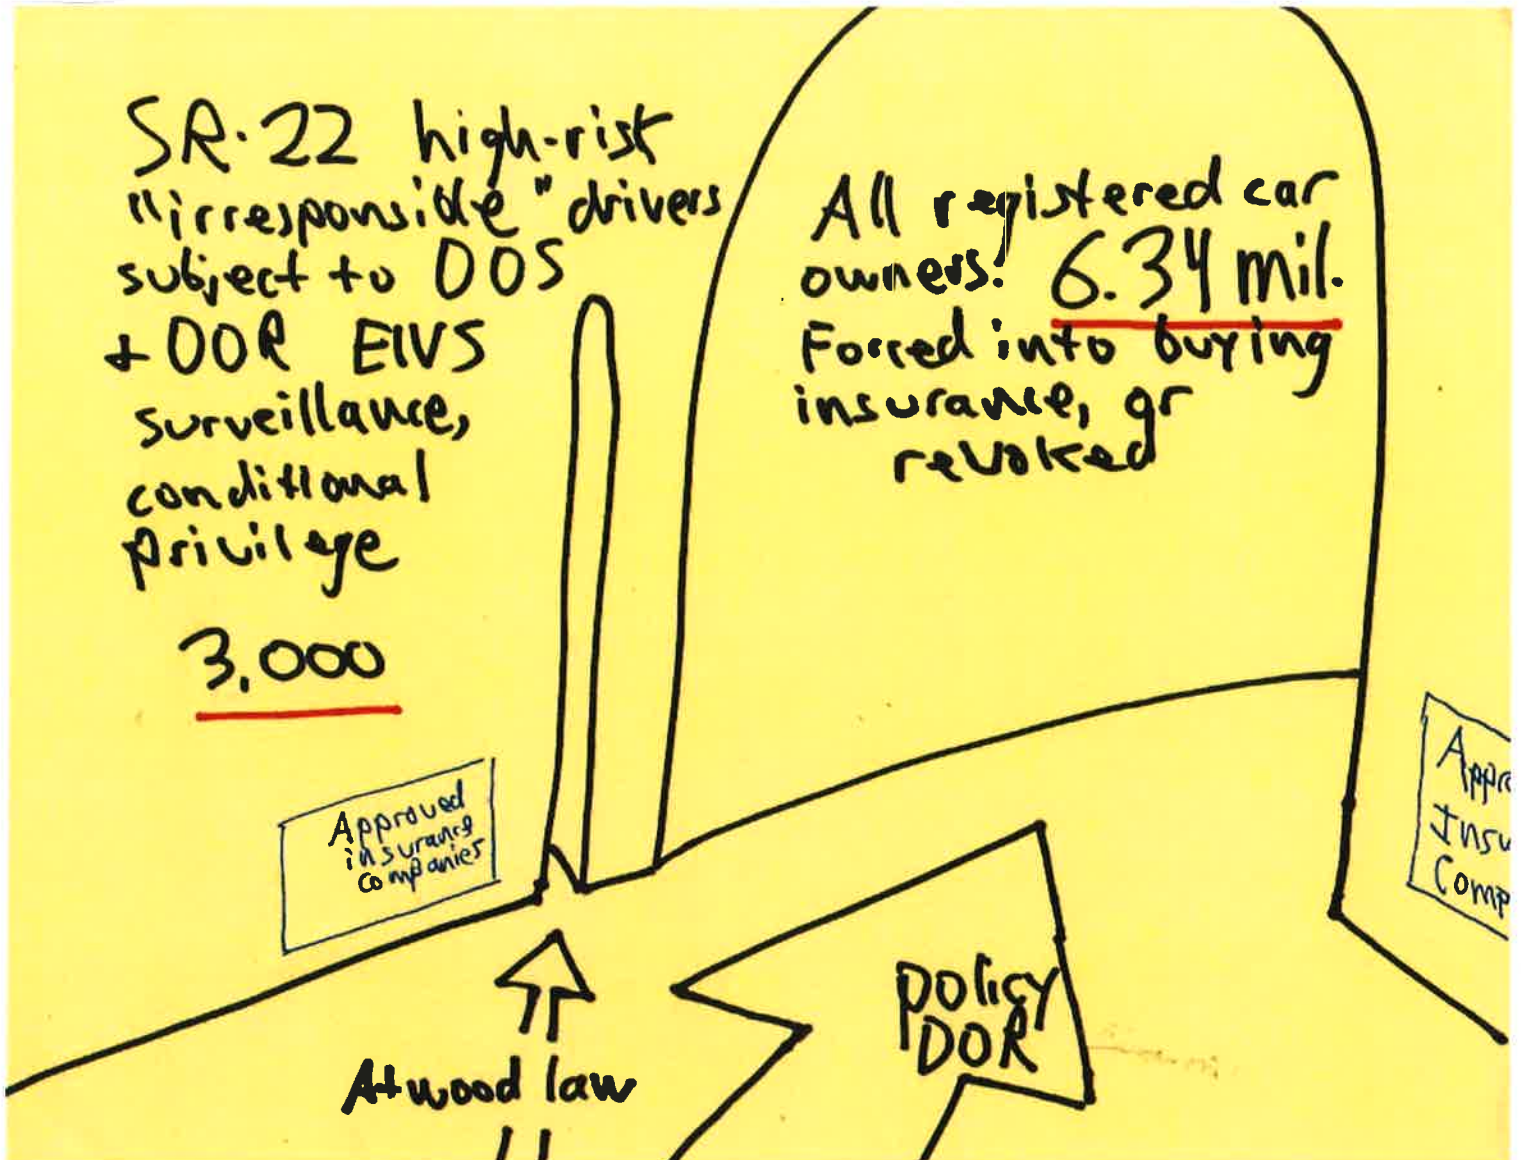 SR-22 high-risk
"irresponsible" drivers
subject to DOS
+ DOR EIVS
surveillance,
conditional
privilege
3,000
All registered car
owners: 6.34 mil.
Forced into buying
insurance, or
revoked
Approved
insurance
companies
Appro
Insu
Comp
Atwood law
policy
DOR